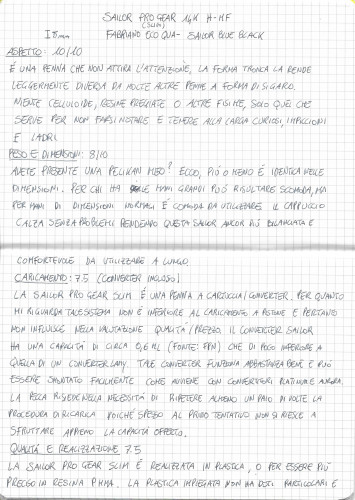 SAILOR PRO GEAR 14K H-MF
(SLIM)
FABRIANO ECO QUA - SAILOR BLUE BLACK
ASPETTO: 10/10
É UNA PENNA CHE NON ATTIRA L'ATTENZIONE. LA FORMA TRONCA LA RENDE
LEGGERMENTE DIVERSA DA MOLTE ALTRE PENNE A FORMA DI SIGARO.
NIENTE CELLULOIDE, RESINE PREGIATE O ALTRE FISIME, SOLO QUEL CHE
SERVE PER NON FARSI NOTARE E TENERE ALLA LARGA CURIOSI, IMPICCIONI
E LADRI.
PESO E DIMENSIONI: 8/10
AVETE PRESENTE UNA PELIKAN M200? ECCO, PIÙ O MENO É IDENTICA NELLE
DIMENSIONI. PER CHI HA LE MANI GRANDI PUÒ RISULTARE SCOMODA, MA
PER MANI DI DIMENSIONI NORMALI É COMODA DA UTILIZZARE. IL CAPPUCCIO
CALZA SENZA PROBLEMI RENDENDO QUESTA SAILOR ANCOR PIÙ BILANCIATA E
CONFORTEVOLE DA UTILIZZARE A LUNGO.
CARICAMENTO: 7.5 (CONVERTER INCLUSO)
LA SAILOR PRO GEAR SLIM É UNA PENNA A CARTUCCIA/CONVERTER. PER QUANTO
MI RIGUARDA TALE SISTEMA NON É INFERIORE AL CARICAMENTO A PISTONE E PERTANTO
NON INFLUISCE NELLA VALUTAZIONE QUALITÁ/PREZZO. IL CONVERTER SAILOR
HA UNA CAPACITÁ DI CIRCA 0,6 ML (FONTE: FPN) CHE DI POCO INFERIORE A
QUELLA DI UN CONVERTER LAMY. TALE CONVERTER FUNZIONA ABBASTANZA BENE E PUÒ
ESSERE SMONTATO FACILMENTE COME AVVIENE CON CONVERTITORI PLATINUM E AURORA.
LA PECCA RISIEDE NELLA NECESSITÁ DI RIPETERE ALMENO UN PAIO DI VOLTE LA
PROCEDURA DI RICARICA POICHÉ SPESSO AL PRIMO TENTATIVO NON SI RIESCE A
SFRUTTARE APPIENO LA CAPACITÁ OFFERTA.
QUALITÁ E REALIZZAZIONE 7.5
LA SAILOR PRO GEAR SLIM É REALIZZATA IN PLASTICA, O PER ESSERE PIÙ
PRECISO IN RESINA PMMA. LA PLASTICA IMPIEGATA NON HA DOTI PARTICOLARI E